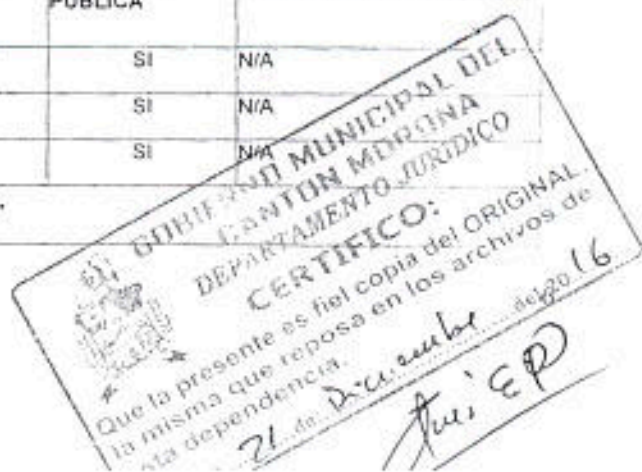 PUBLICA
SI N/A
SI N/A
SI N/A
GOBIERNO MUNICIPAL DEL
CANTON MORONA
DEPARTAMENTO JURIDICO
CERTIFICO:
Que la presente es fiel copia del ORIGINAL.
la misma que reposa en los archivos de
sta dependencia.
21 de Diciembre del 2016